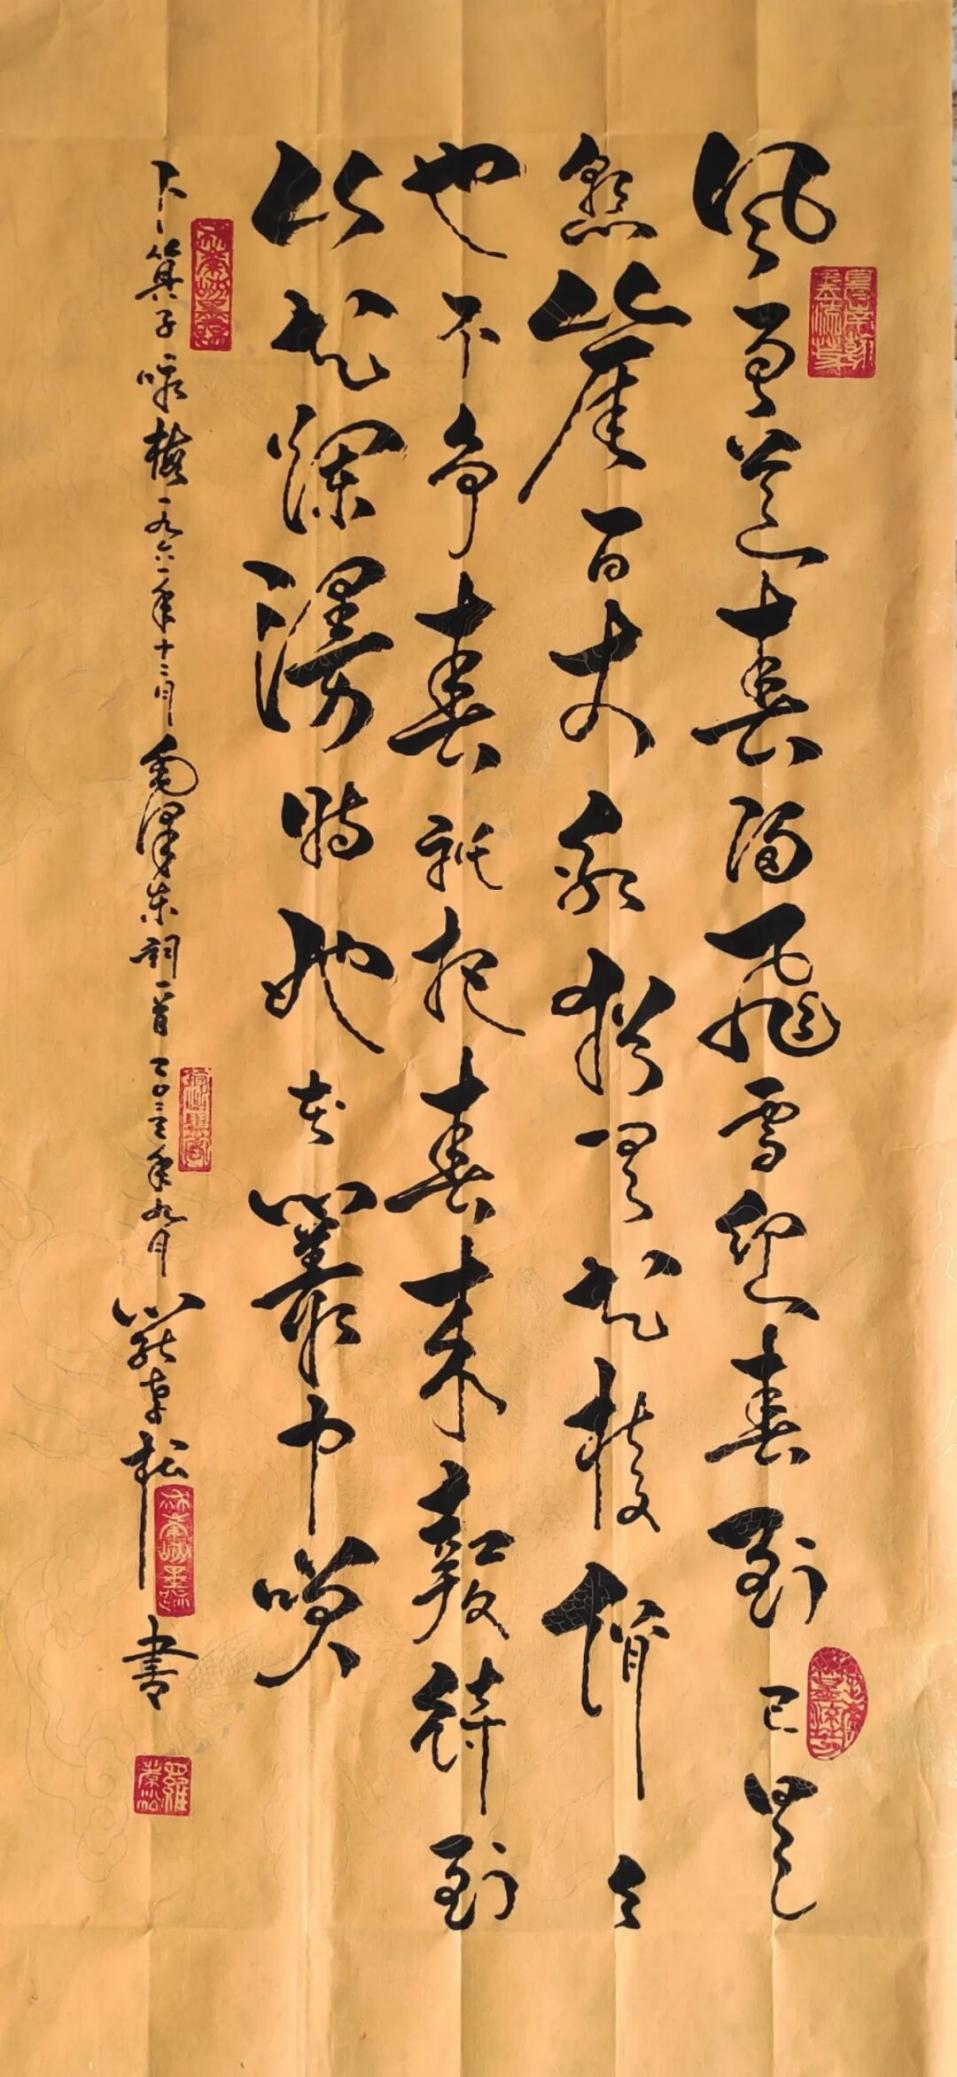 風雨送春歸飛雪迎春到已是
懸崖百丈冰猶有花枝俏々
也不爭春祇把春來報待到
山花爛漫時她在叢中笑
卜算子咏梅一九六一年十二月毛澤東詞一首二〇二三年九月羅松書